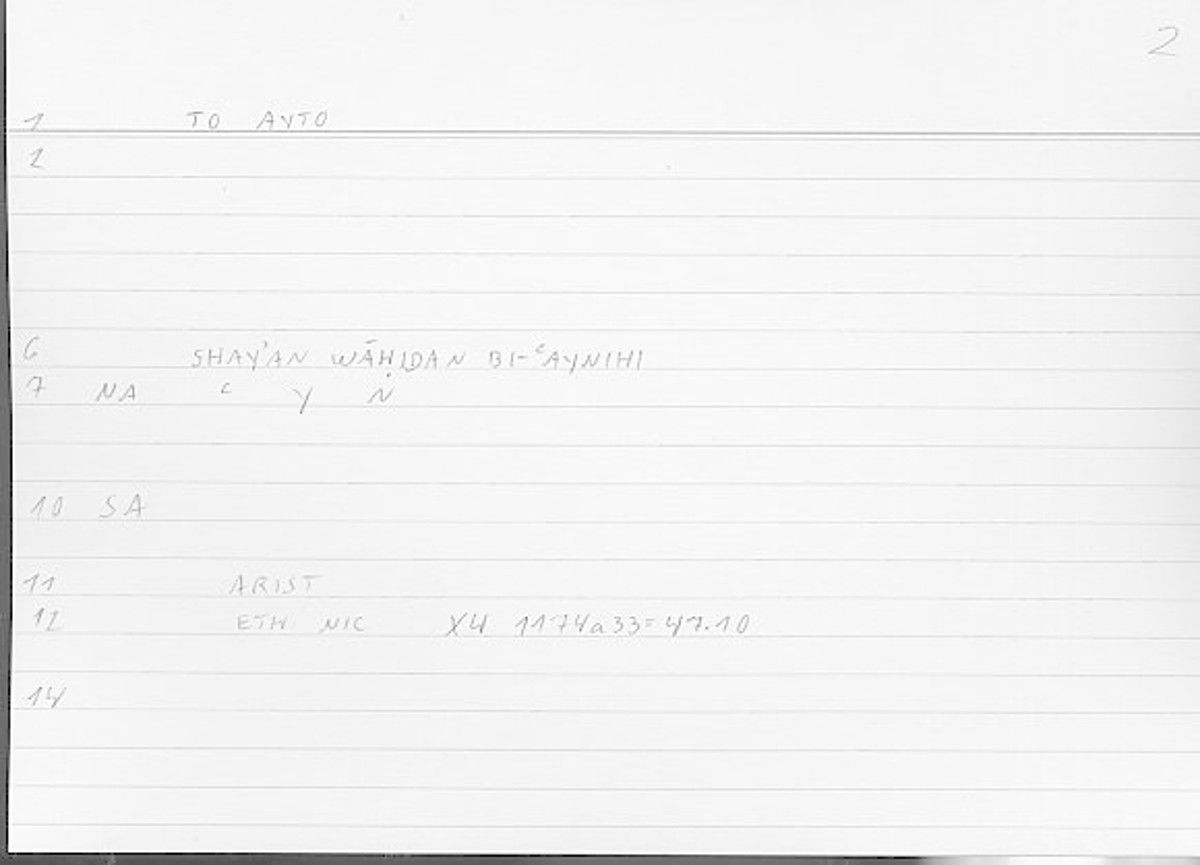 2
1 TO AYTO
2
6 SHAY'AN WĀḤIDAN BI-ʿAYNIHI
7 NA ʿ Y N
10 SA
11 ARIST
12 ETH NIC X4 1174a33=47.10
14